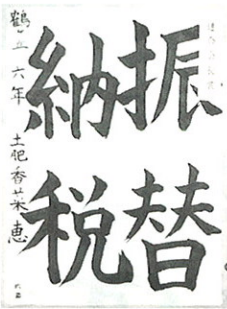 振替
納税
鶴五 六年 土肥香菜恵